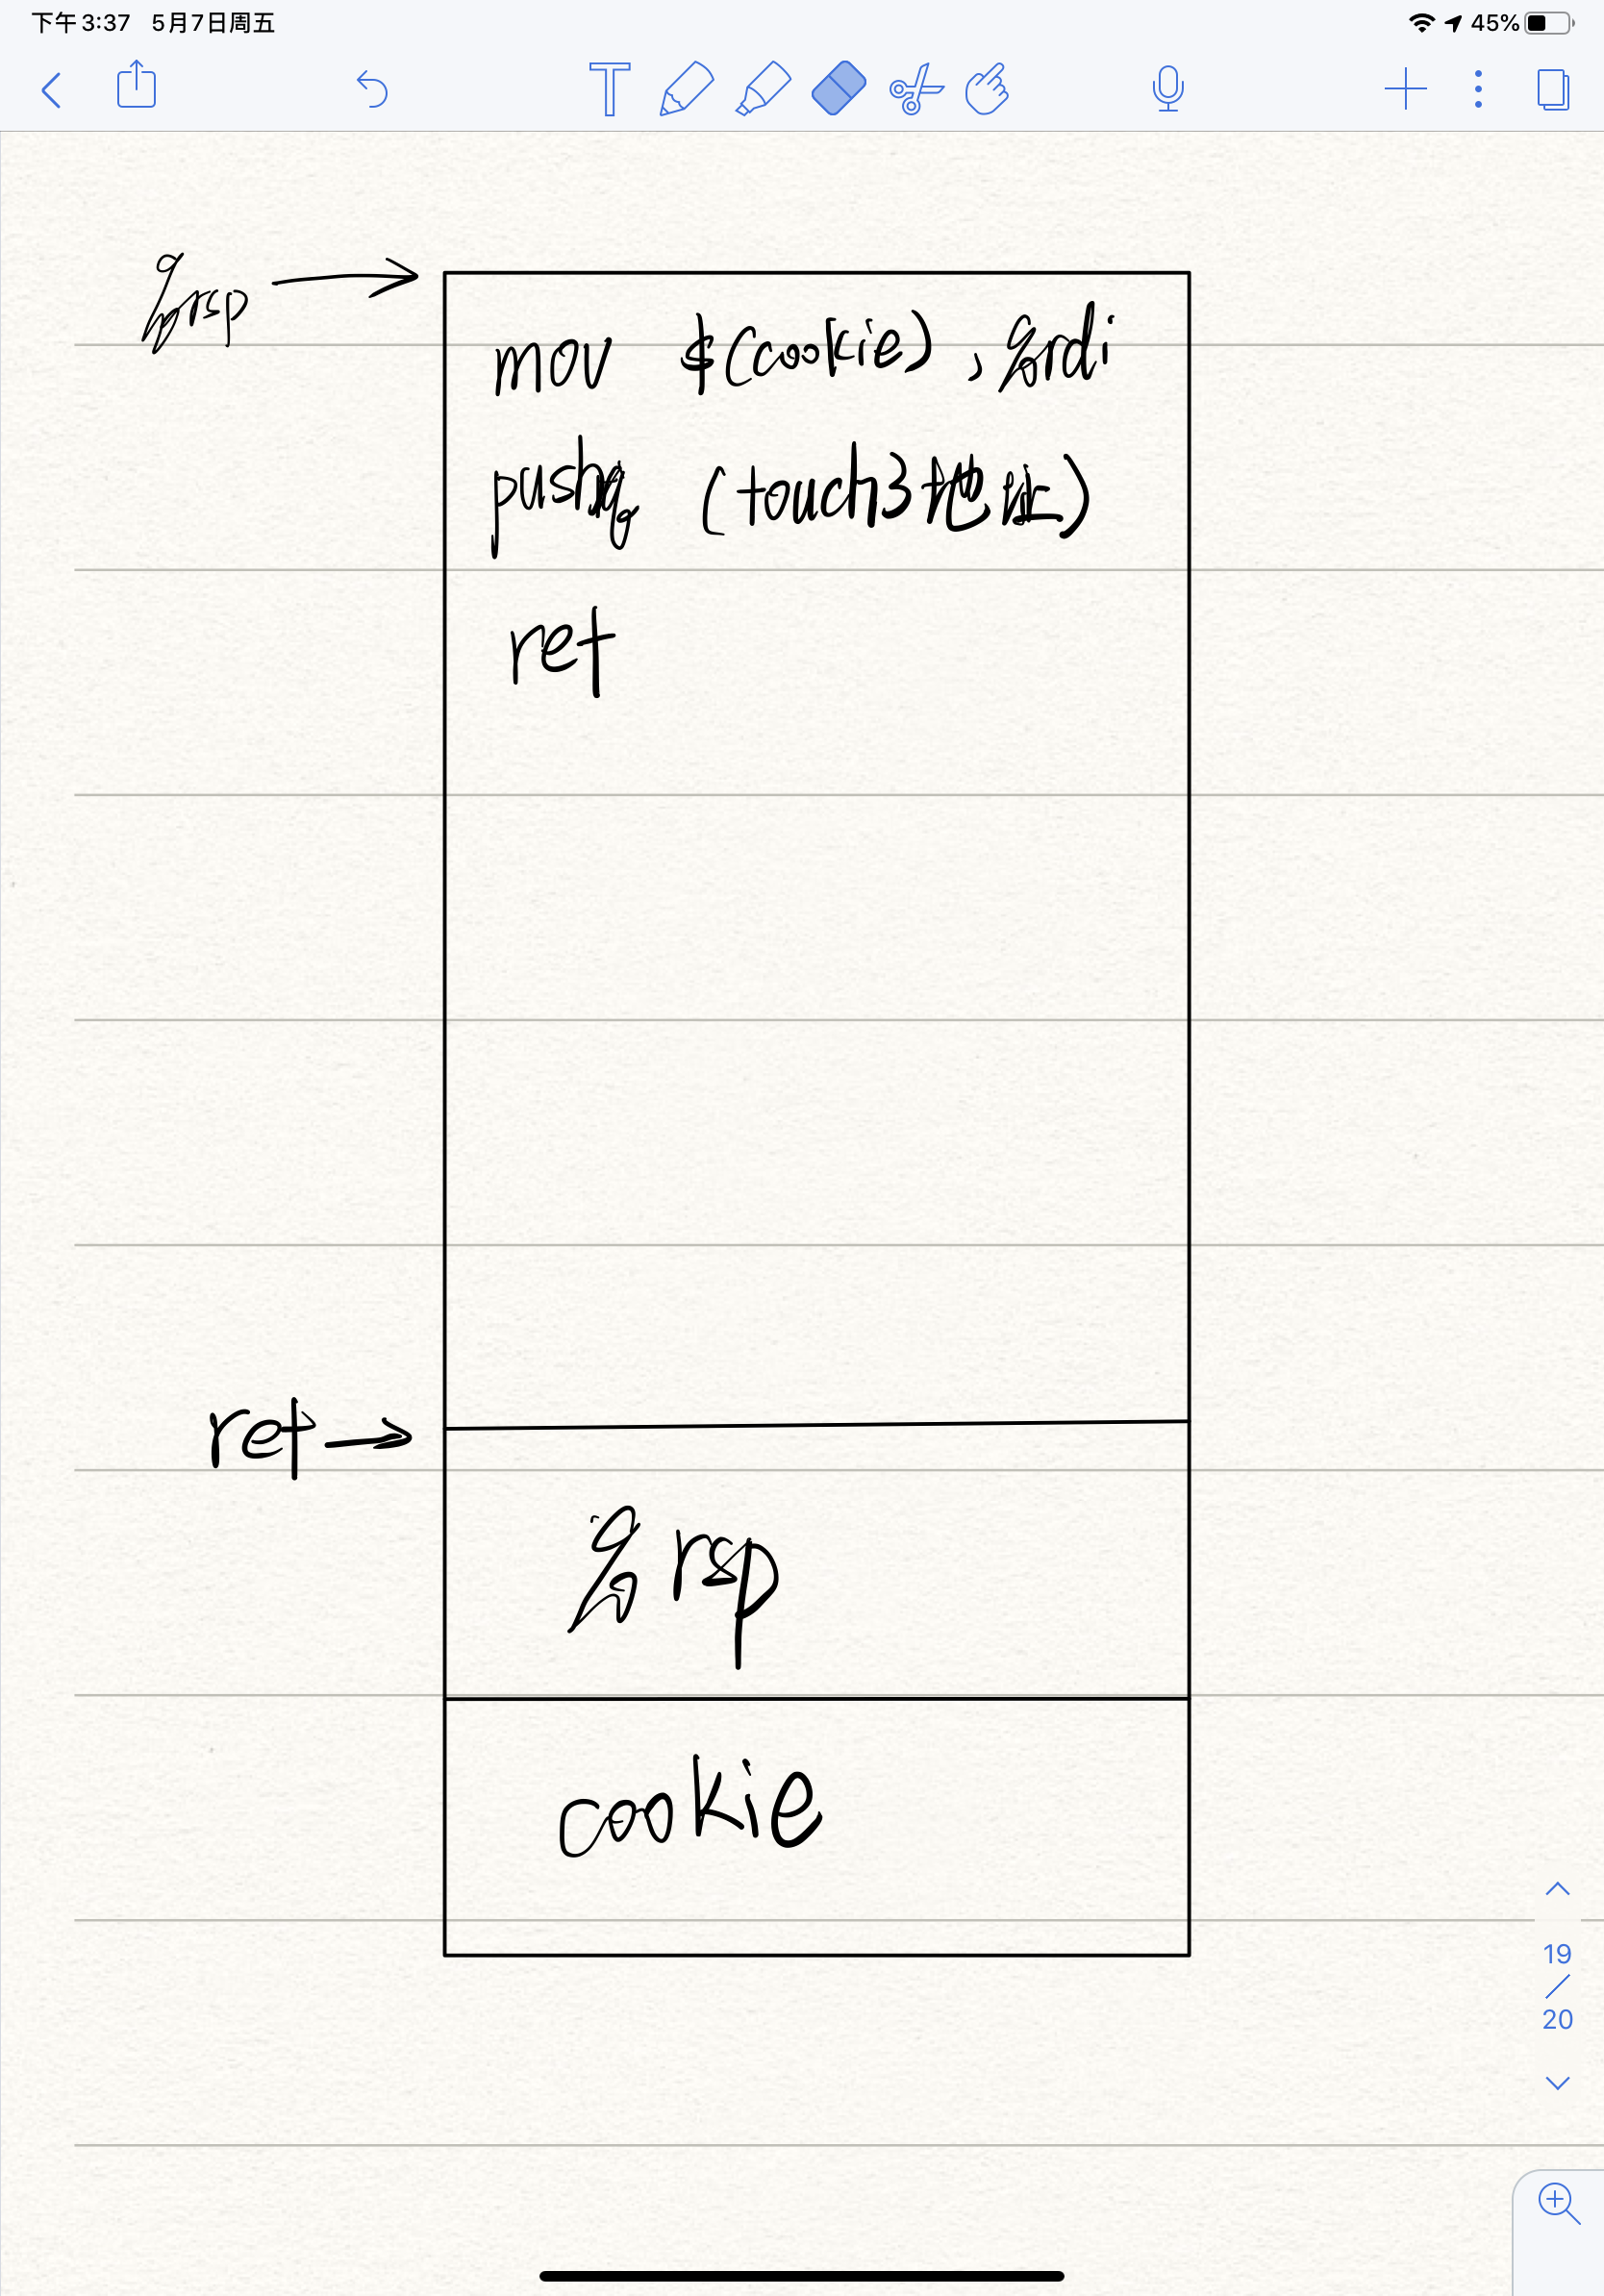 下午3:37 5月7日周五
45%
%rsp
mov $(cookie), %rdi
pushq (touch3地址)
ret
ret
%rsp
cookie
19
/
20